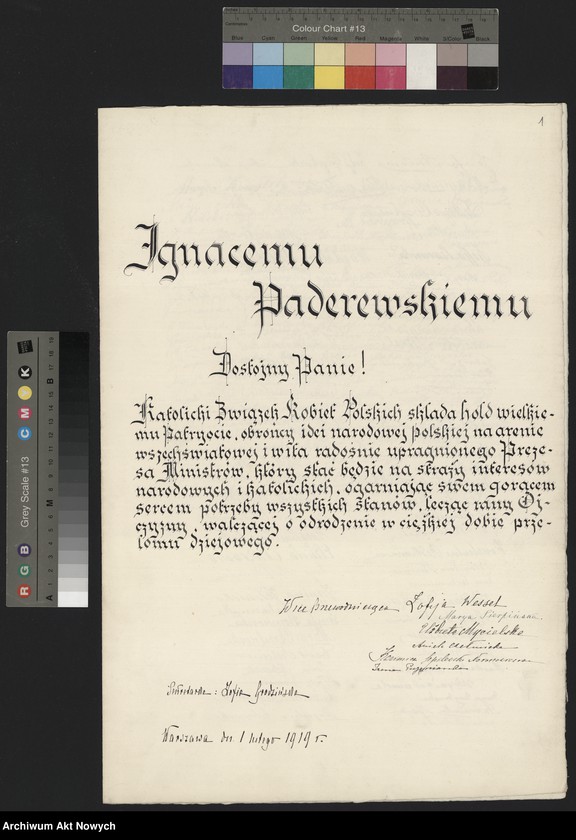 Colour Chart #13
Blue Cyan Green Yellow Red Magenta White 3/Color Black
Grey Scale #13
R G B C M Y K
A M B
1
Ignacemu
Paderewskiemu
Dostojny Panie!
Katolicki Związek Kobiet Polskich składa hołd wielkie-
mu Patryocie, obrońcy idei narodowej polskiej na arenie
wszechświatowej i wita radośnie upragnionego Preze-
sa Ministrów, który stać będzie na straży interesów
narodowych i katolickich, ogarniając swem gorącem
sercem potrzeby wszystkich stanów, lecząc rany Oj-
czyzny, walczącej o odrodzenie w ciężkiej dobie prze-
łomu dziejowego.
Wice przewodnicząca Zofja Wessel
Marya
Elżbieta Mycielska
Sekretarka: Zofja Grodzińska
Warszawa dn. 1 lutego 1919 r.
Archiwum Akt Nowych